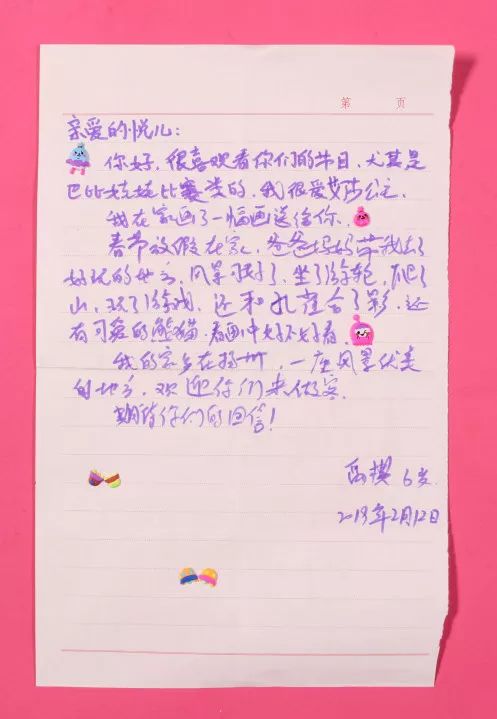 第 页
亲爱的悦儿：
你好，很喜欢看你们的节目，尤其是
巴比娃娃比赛类的，我很爱艾莎公主
我在家画了一幅画送给你，
春节放假在家，爸爸妈妈带我去了
好玩的地方，风筝，坐了游轮，爬了
山，玩了游戏，还和孔雀合了影，还
有可爱的熊猫，看画中好不好看
我的家乡在扬州，一座风景优美
的地方，欢迎你们来做客
期待你们的回信！
6岁
2019年2月12日